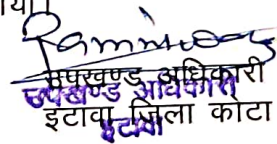 या।
उपखण्ड अधिकारी
उपखण्ड अधिकारी
इटावा जिला कोटा
इटावा